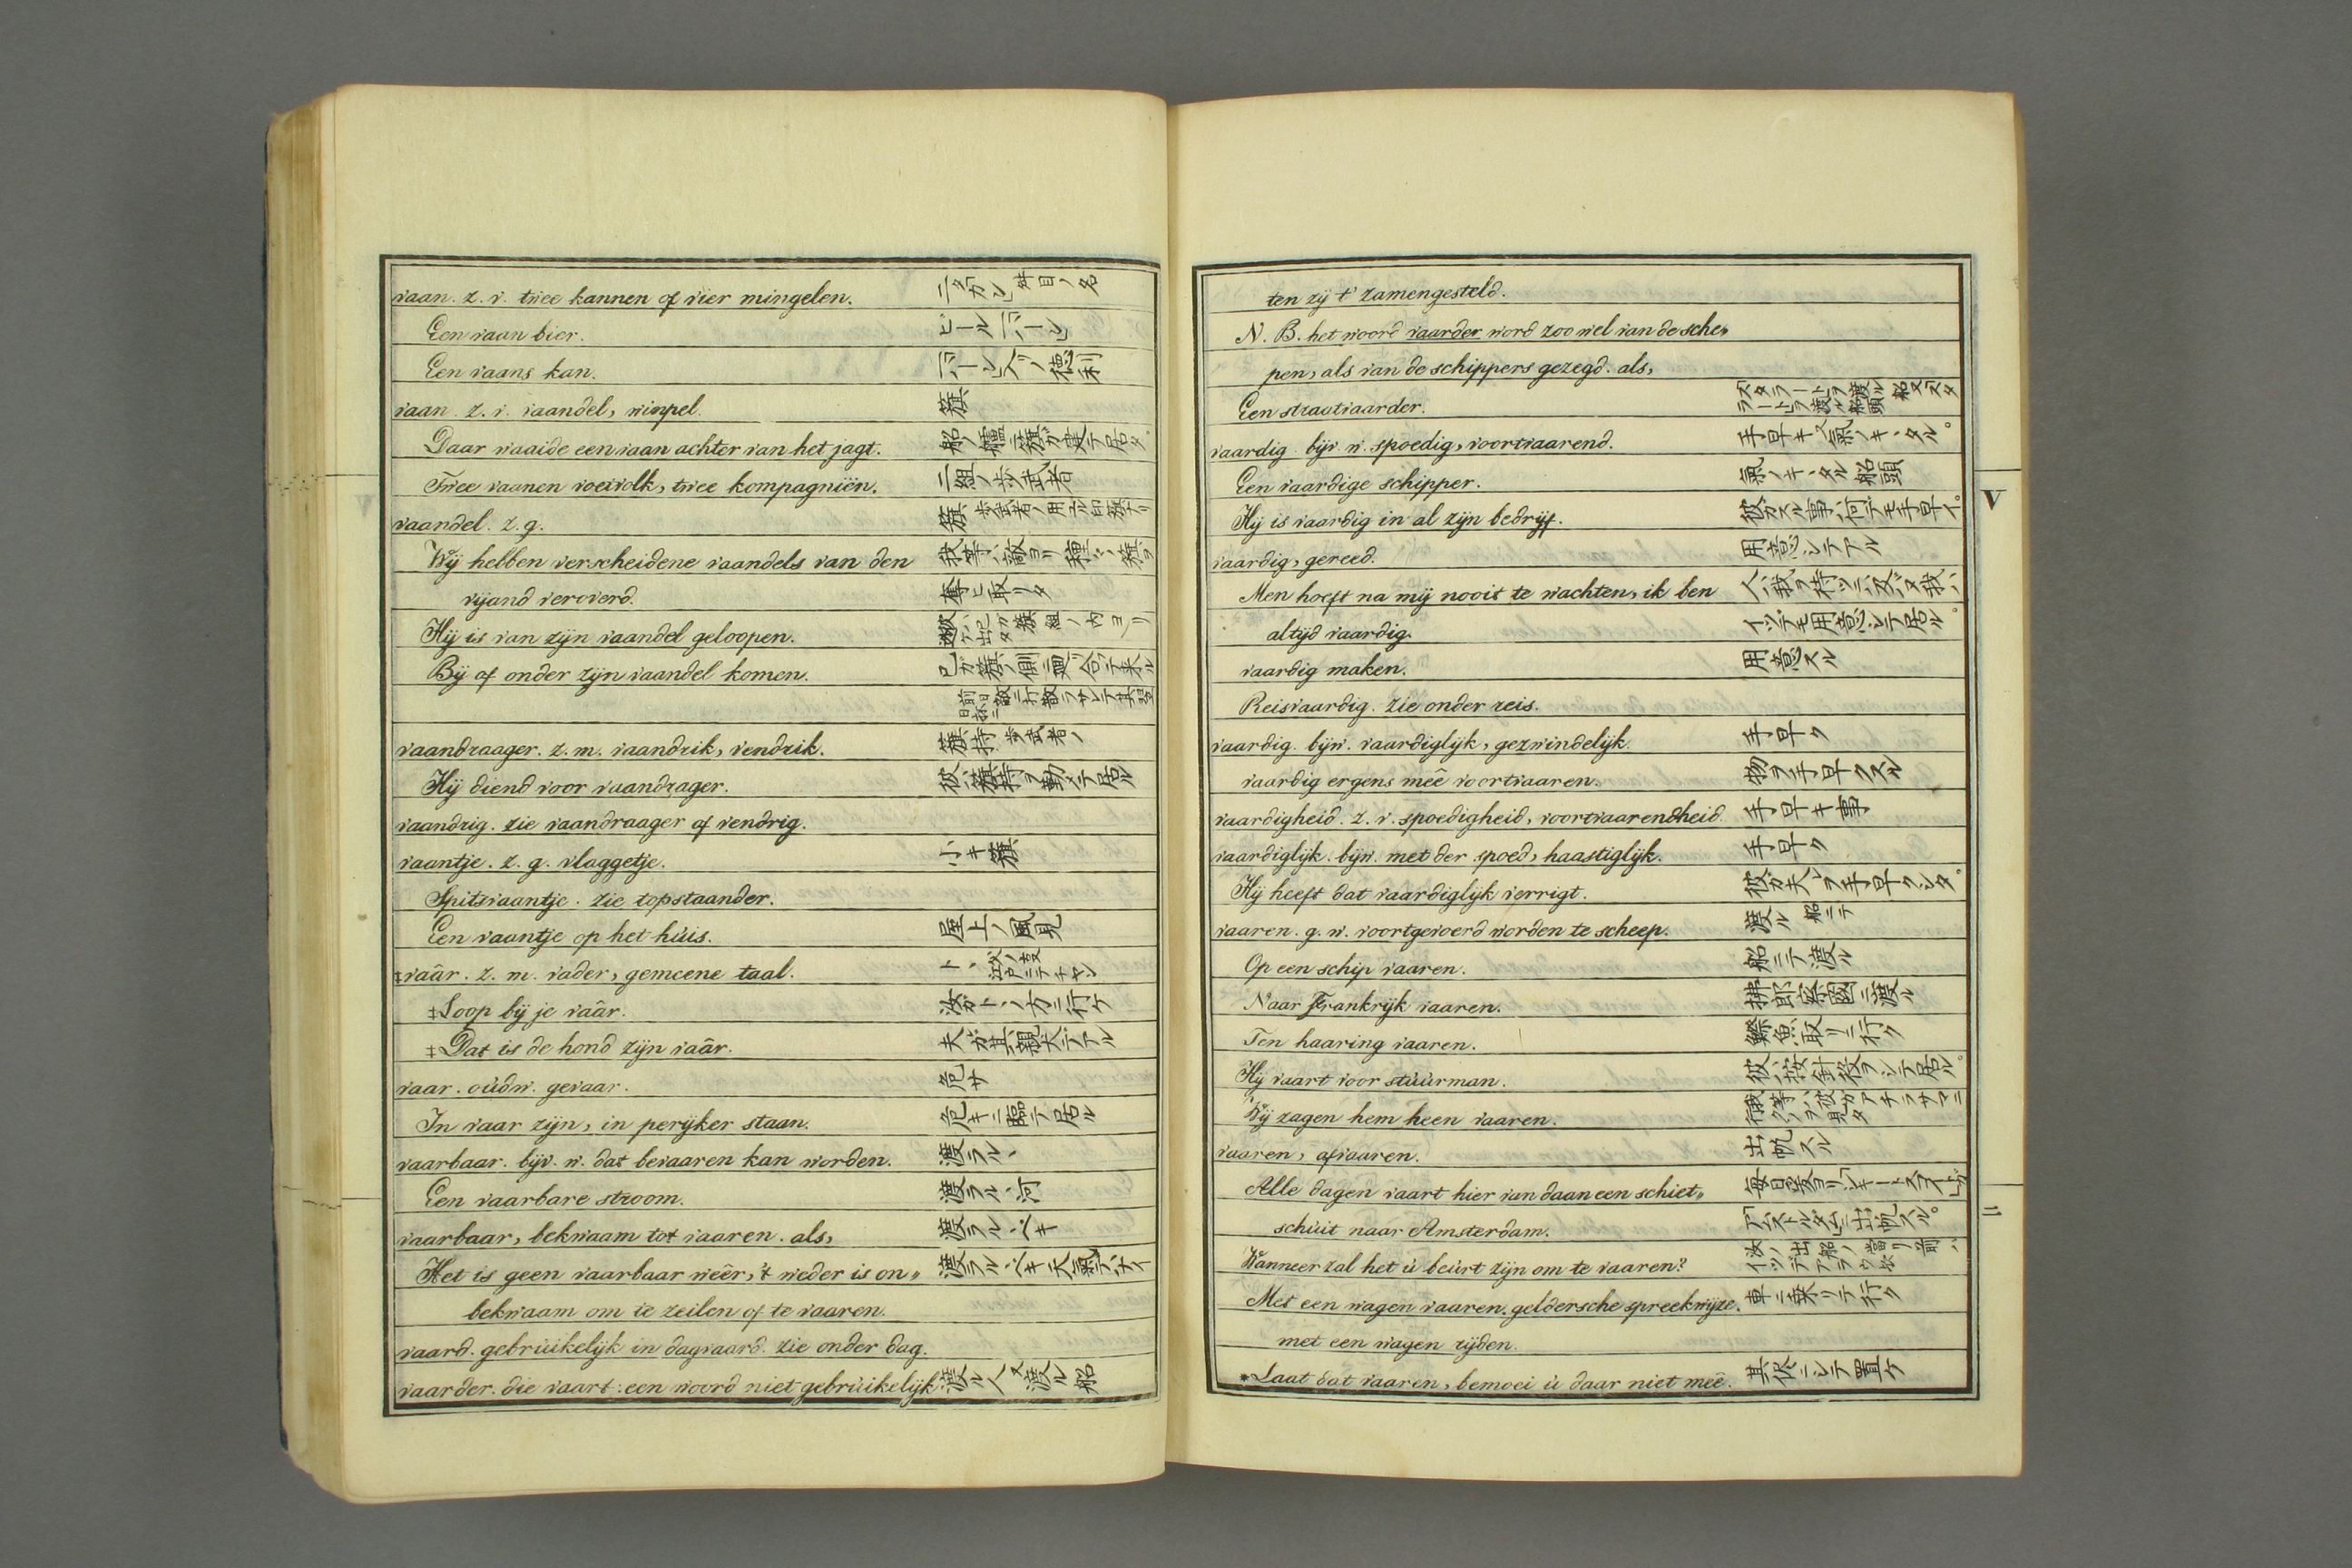 vaan. z. v. twee kannen of vier mingelen.
Een vaan bier.
Een vaans kan.
vaan. z. v. vaandel, winpel. 籏
Daar waaide een vaan achter van het jagt. 船ノ艫ニ籏ガ建テ居タ
Twee vaanen voetvolk, twee kompagniën. 二組ノ歩武者
vaandel. z. g. 籏
Wij hebben verscheidene vaandels van den
vijand veroverd. 奪ヒ取リタ
Hij is van zijn vaandel geloopen.
Bij of onder zijn vaandel komen.
vaandraager. z. m. vaandrik, vendrik. 籏持 歩武者ノ
Hij diend voor vaandrager. 彼ハ籏持ヲ勤テ居ル
vaandrig. zie vaandraager of vendrig.
vaantje. z. g. vlaggetje. 小キ籏
Spitsvaantje. zie topstaander.
Een vaantje op het húis. 屋上ノ風見
‡vaâr. z. m. vader, gemeene taal.
‡Loop bij je vaâr. 汝ガトヽノ方ニ行ケ
‡Dat is de hond zijn vaâr. 夫ガ其親犬デアル
vaar. oúdw. gevaar. 危サ
In vaar zijn, in perijker staan. 危キニ臨テ居ル
vaarbaar. bijv. w. dat bevaaren kan worden. 渡ラルヽ
Een vaarbare stroom. 渡ラルヽ河
vaarbaar, bekwaam tot vaaren. als, 渡ラルベキ
Het is geen vaarbaar weêr, 't weder is on„ 渡ラルベキ天氣デナイ
bekwaam om te zeilen of te vaaren.
vaard. gebrúikelijk in dagvaard. zie onder dag.
vaarder. die vaart. een woord niet gebrúikelijk 渡ル人又渡ル船
ten zij t' zamengesteld.
N. B. het woord vaarder word zoo wel van de sche„
pen, als van de schippers gezegd. als,
Een straatvaarder.
vaardig. bijv. w. spoedig, voortvaarend. 手早キ又氣ノキヽタル。
Een vaardige schipper. 氣ノキヽタル船頭
Hij is vaardig in al zijn bedrijf. 彼ガスル事ハ何デモ手早イ。
vaardig, gereed. 用意シテアル
Men hoeft na mij nooit te wachten, ik ben 人ハ我ヲ待ツニ及バヌ我ハ
altijd vaardig. イツデモ用意シテ居ル。
vaardig maken. 用意スル
Reisvaardig. zie onder reis.
vaardig. bijw. vaardiglijk, gezwindelijk. 手早ク
vaardig ergens meê voortvaaren. 物ヲ手早クスル
vaardigheid. z. v. spoedigheid, voortvaarendheid. 手早キ事
vaardiglijk. bijw. met der spoed, haastiglijk. 手早ク
Hij heeft dat vaardiglijk verrigt. 彼ガ夫レヲ手早クシタ。
vaaren. g. w. voortgevoerd worden te scheep. 渡ル 船ニテ
Op een schip vaaren. 船ニテ渡ル
Naar Frankrijk vaaren. 拂郎察國ニ渡ル
Ten haaring vaaren. 魚取リニ行ク
Hij vaart voor stúúrman. 彼ハ按針役ヲシテ居ル。
Wij zagen hem heen vaaren.
vaaren, afvaaren. 出帆スル
Alle dagen vaart hier van daan een schiet„
schúit naar Amsterdam. 「アムストルダム」ニ出帆スル。
Wanneer zal het ú beúrt zijn om te vaaren?
Met een wagen vaaren. geldersche spreekwijze. 車ニ乘リテ行ク
met een wagen rijden.
*Laat dat vaaren, bemoei ú daar niet meê. 其侭ニシテ置ケ
V